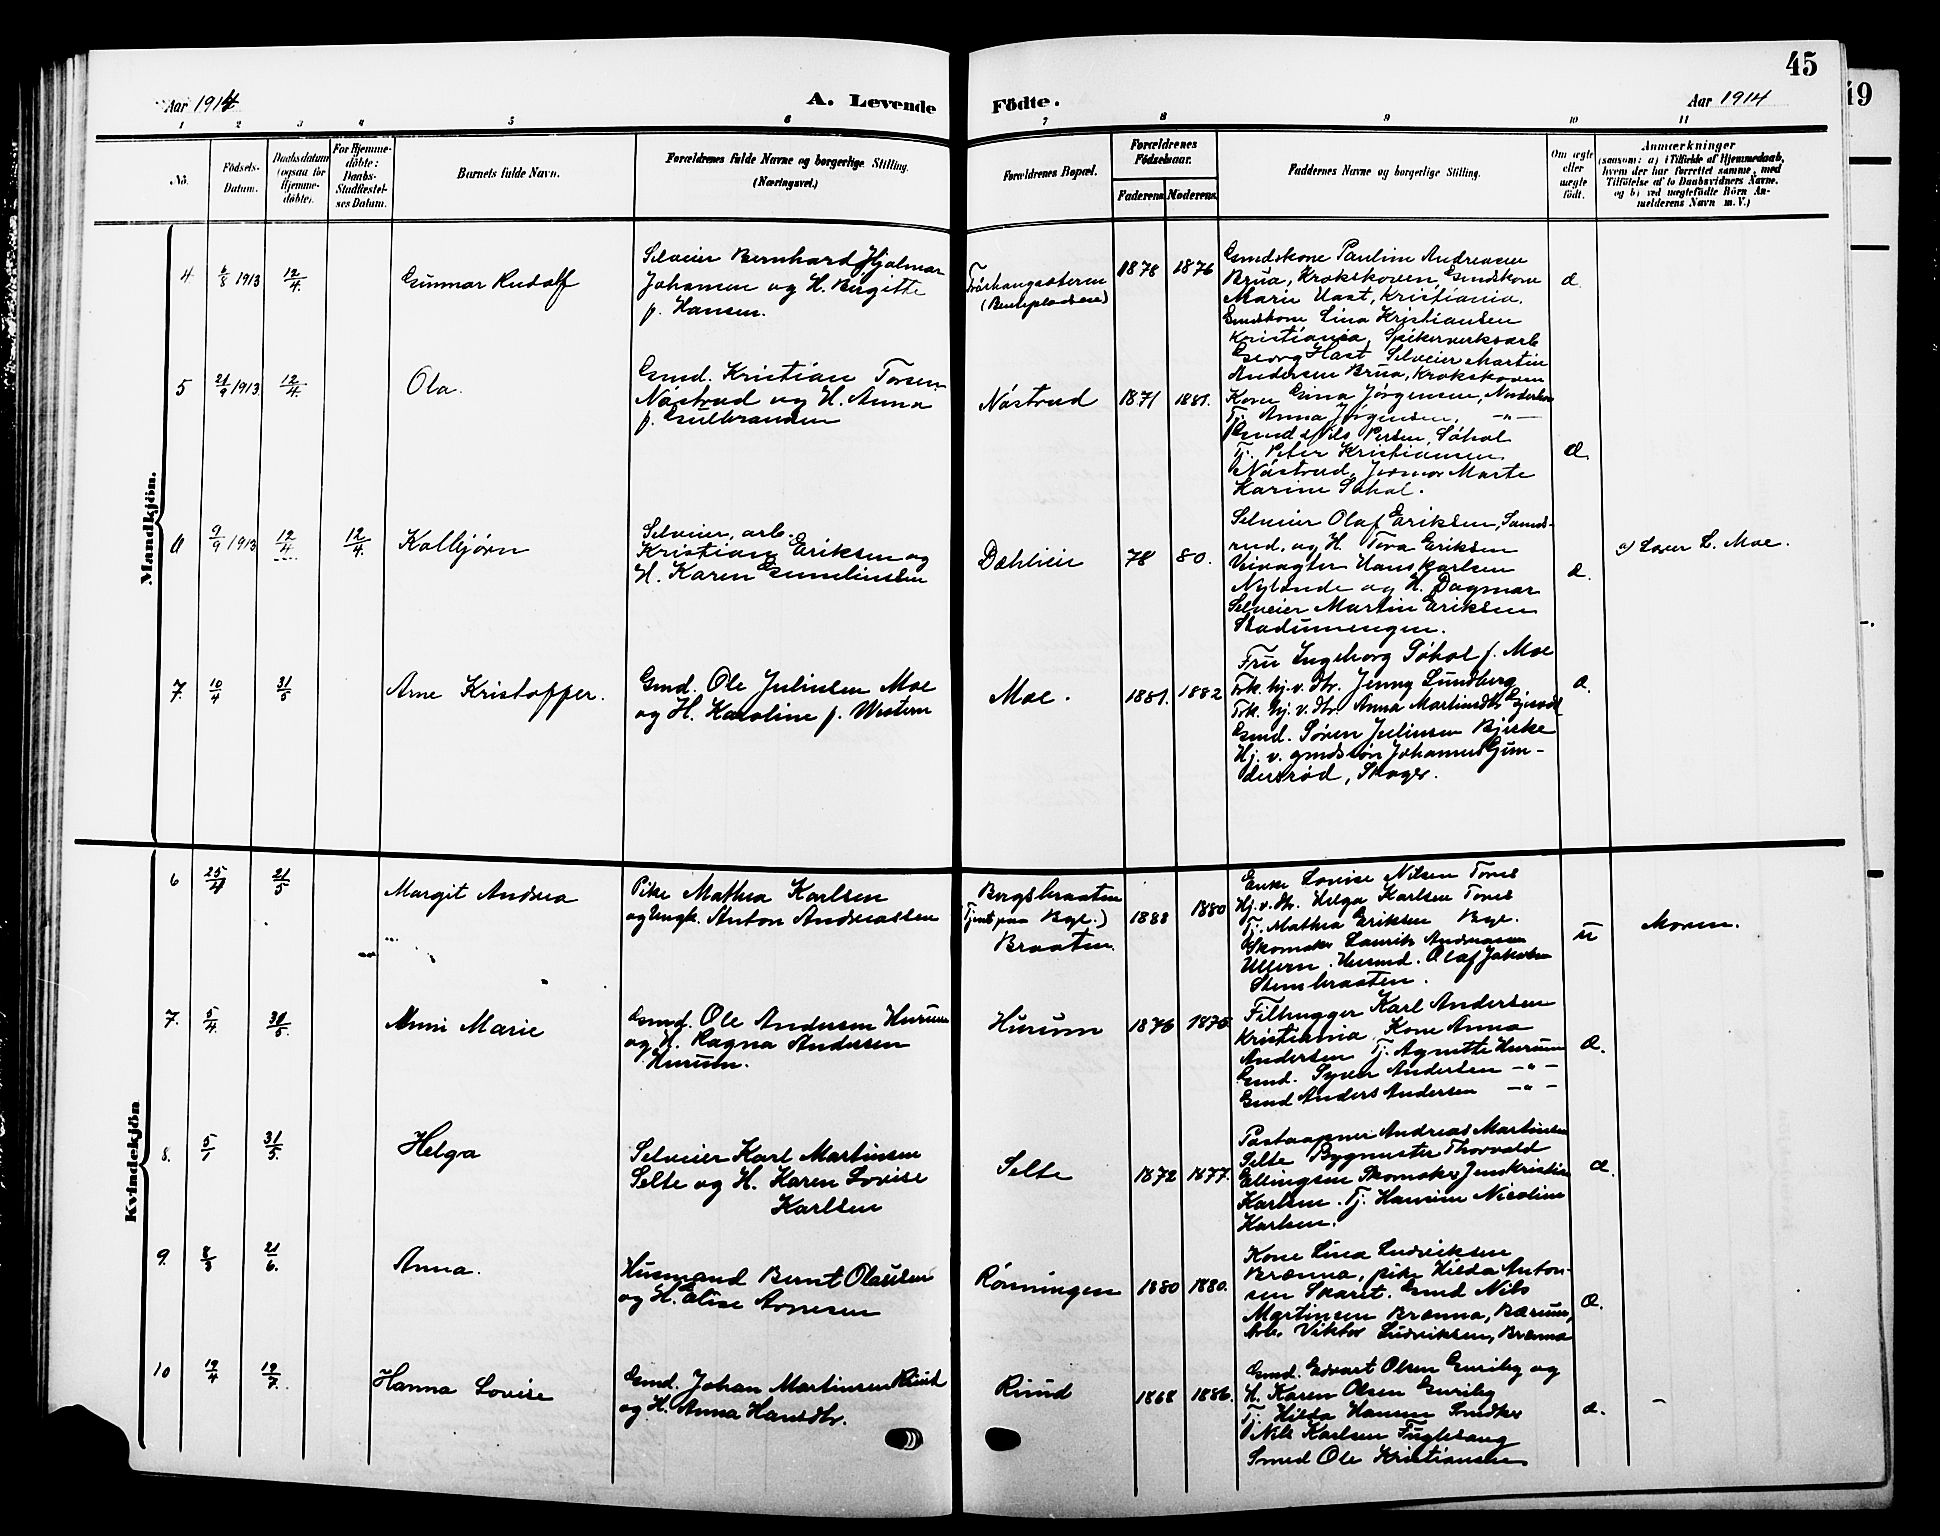 45
19
Aar 1914
A. Levende
Födte.
Aar 1914
1 2 3 4 5 6 7 8 9 10 11
No.
Födsels-
Datum.
Daabsdatum
(ogsaa for
Hjemme-
döbte).
For Hjemme-
döbte:
Daabs-
Stadfæstel-
ses Datum.
Barnets fulde Navn.
Forældrenes fulde Navne og borgerlige Stilling.
(Næringsvei.)
Forældrenes Bopæl.
Forældrenes
Födselsaar.
Faderens. Moderens.
Faddernes Navne og borgerlige Stilling.
Om ægte
eller
uægte
födt.
Anmærkninger
(saasom: a) i Tilfælde af Hjemmedaab,
hvem der har forrettet samme, med
Tilföielse af to Daabsvidners Navne,
og b) ved uægtefödte Börn An-
melderens Navn m. V.)
Mandkjön.
4
6/8 1913
12/4.
Gunnar Rudolf
Selveier Bernhard Hjalmar
Johansen og H. Birgitte
f. Hansen.
1878 1876
Gmdskone Pauline Andreasen
Brua, Krokskoven, Gmdskone
Marie Hast, Kristiania.
Gmdskone Lina Kristiansen
Kristiania, Spikerverksarb
Georg Hast, Selveier Martin
Andersen Brua, Krokskoven
5
21/9 1913
12/4.
Ola.
Gmd. Kristian Torsen
Nöstrud og H. Anna
f. Gulbrandsen
Nöstrud
1871 1881.
Kone Gina Jörgensen, Norderhov
Tj. Anna Jörgensen, -"-
Gmd Nils Persen, Söhol
Tj. Peter Kristiansen
Nöstrud, Jordmor Marte
Karine Söhol.
6
9/9 1913
12/4
12/4.
Kolbjørn
Selveier, arb.
Kristian Eriksen og
H. Karen Gunelinsen
Dæhlieie
78 80.
Selveier Olaf Eriksen, Sands-
rud, og H. Tora Eriksen
Veivagter Hans Karlsen
Nylænde og H. Dagmar
Selveier Martin Eriksen
Stadumengen.
a) Lærer L. Moe.
7.
10/4
31/5
Arne Kristoffer.
Gmd. Ole Juliusen Moe
og H. Karoline f. Western
Moe.
1881. 1882
Fru Ingeborg Söhol f. Moe
Frk. hj.v.dtr. Jenny Lundberg
Frk. hj.v.dtr. Anna Martinsdtr
Gmd. Sören Juliusen Bjerke
Hj. v. gmdssön Johannes Gun-
dersröd, Skoger.
Kvindekjön
6
25/4
21/5
Margit Andrea
Pike Mathea Karlsen
og Ungk. Anton Andreassen
Borgsbraaten
Braaten.
1888 1880
Enke Lovise Nilsen Tores
Hj.v.dtr. Helga Karlsen Tores
Tj. Mathea Eriksen By.
Skomaker Laurits Andreasen
Ullern. Husmd. Olaf Jakobsen
Stensbraaten.
u
Moren.
7.
5/4.
31/5.
Anni Marie
Gmd. Ole Andersen Hurum
og H. Ragna Andersen
Hurum.
Hurum
1876 1875
Filhugger Karl Andersen
Kristiania. Kone Anna
Andersen Tj. Agnethe Hurum
Gmd. Syver Andersen -"-
Gmd Anders Andersen -"-
8.
5/1
31/5.
Helga
Selveier Karl Martinsen
Selte og H. Karen Lovise
Karlsen
Selte
1872 1877.
Postaapner Andreas Martinsen
Selte Bygmester Thorvald
Ellingsen Skomaker Jens Kristian
Karlsen. Tj. Hansine Nicoline
Karlsen.
9.
8/3
21/6.
Anna.
Husmand Bernt Olausen
og H. Elise Arnesen
Rönningen
1880 1880.
Kone Lina Ludviksen
Brænna, pike Hilda Anton-
sen Skaret. Gmd Nils
Martinsen Brænna, Bærum,
Arb. Viktor Ludviksen, Brænna
10
12/4
12/7.
Hanna Lovise
Gmd. Johan Martinsen Rund
og H. Anna Hansdtr.
Rund
1868 1886.
Gmd. Edvart Olsen Guriby og
H. Karen Olsen Guriby
Tj. Hilda Hansen
Nils Karlsen Fuglesang
Smed Ole Kristiansen